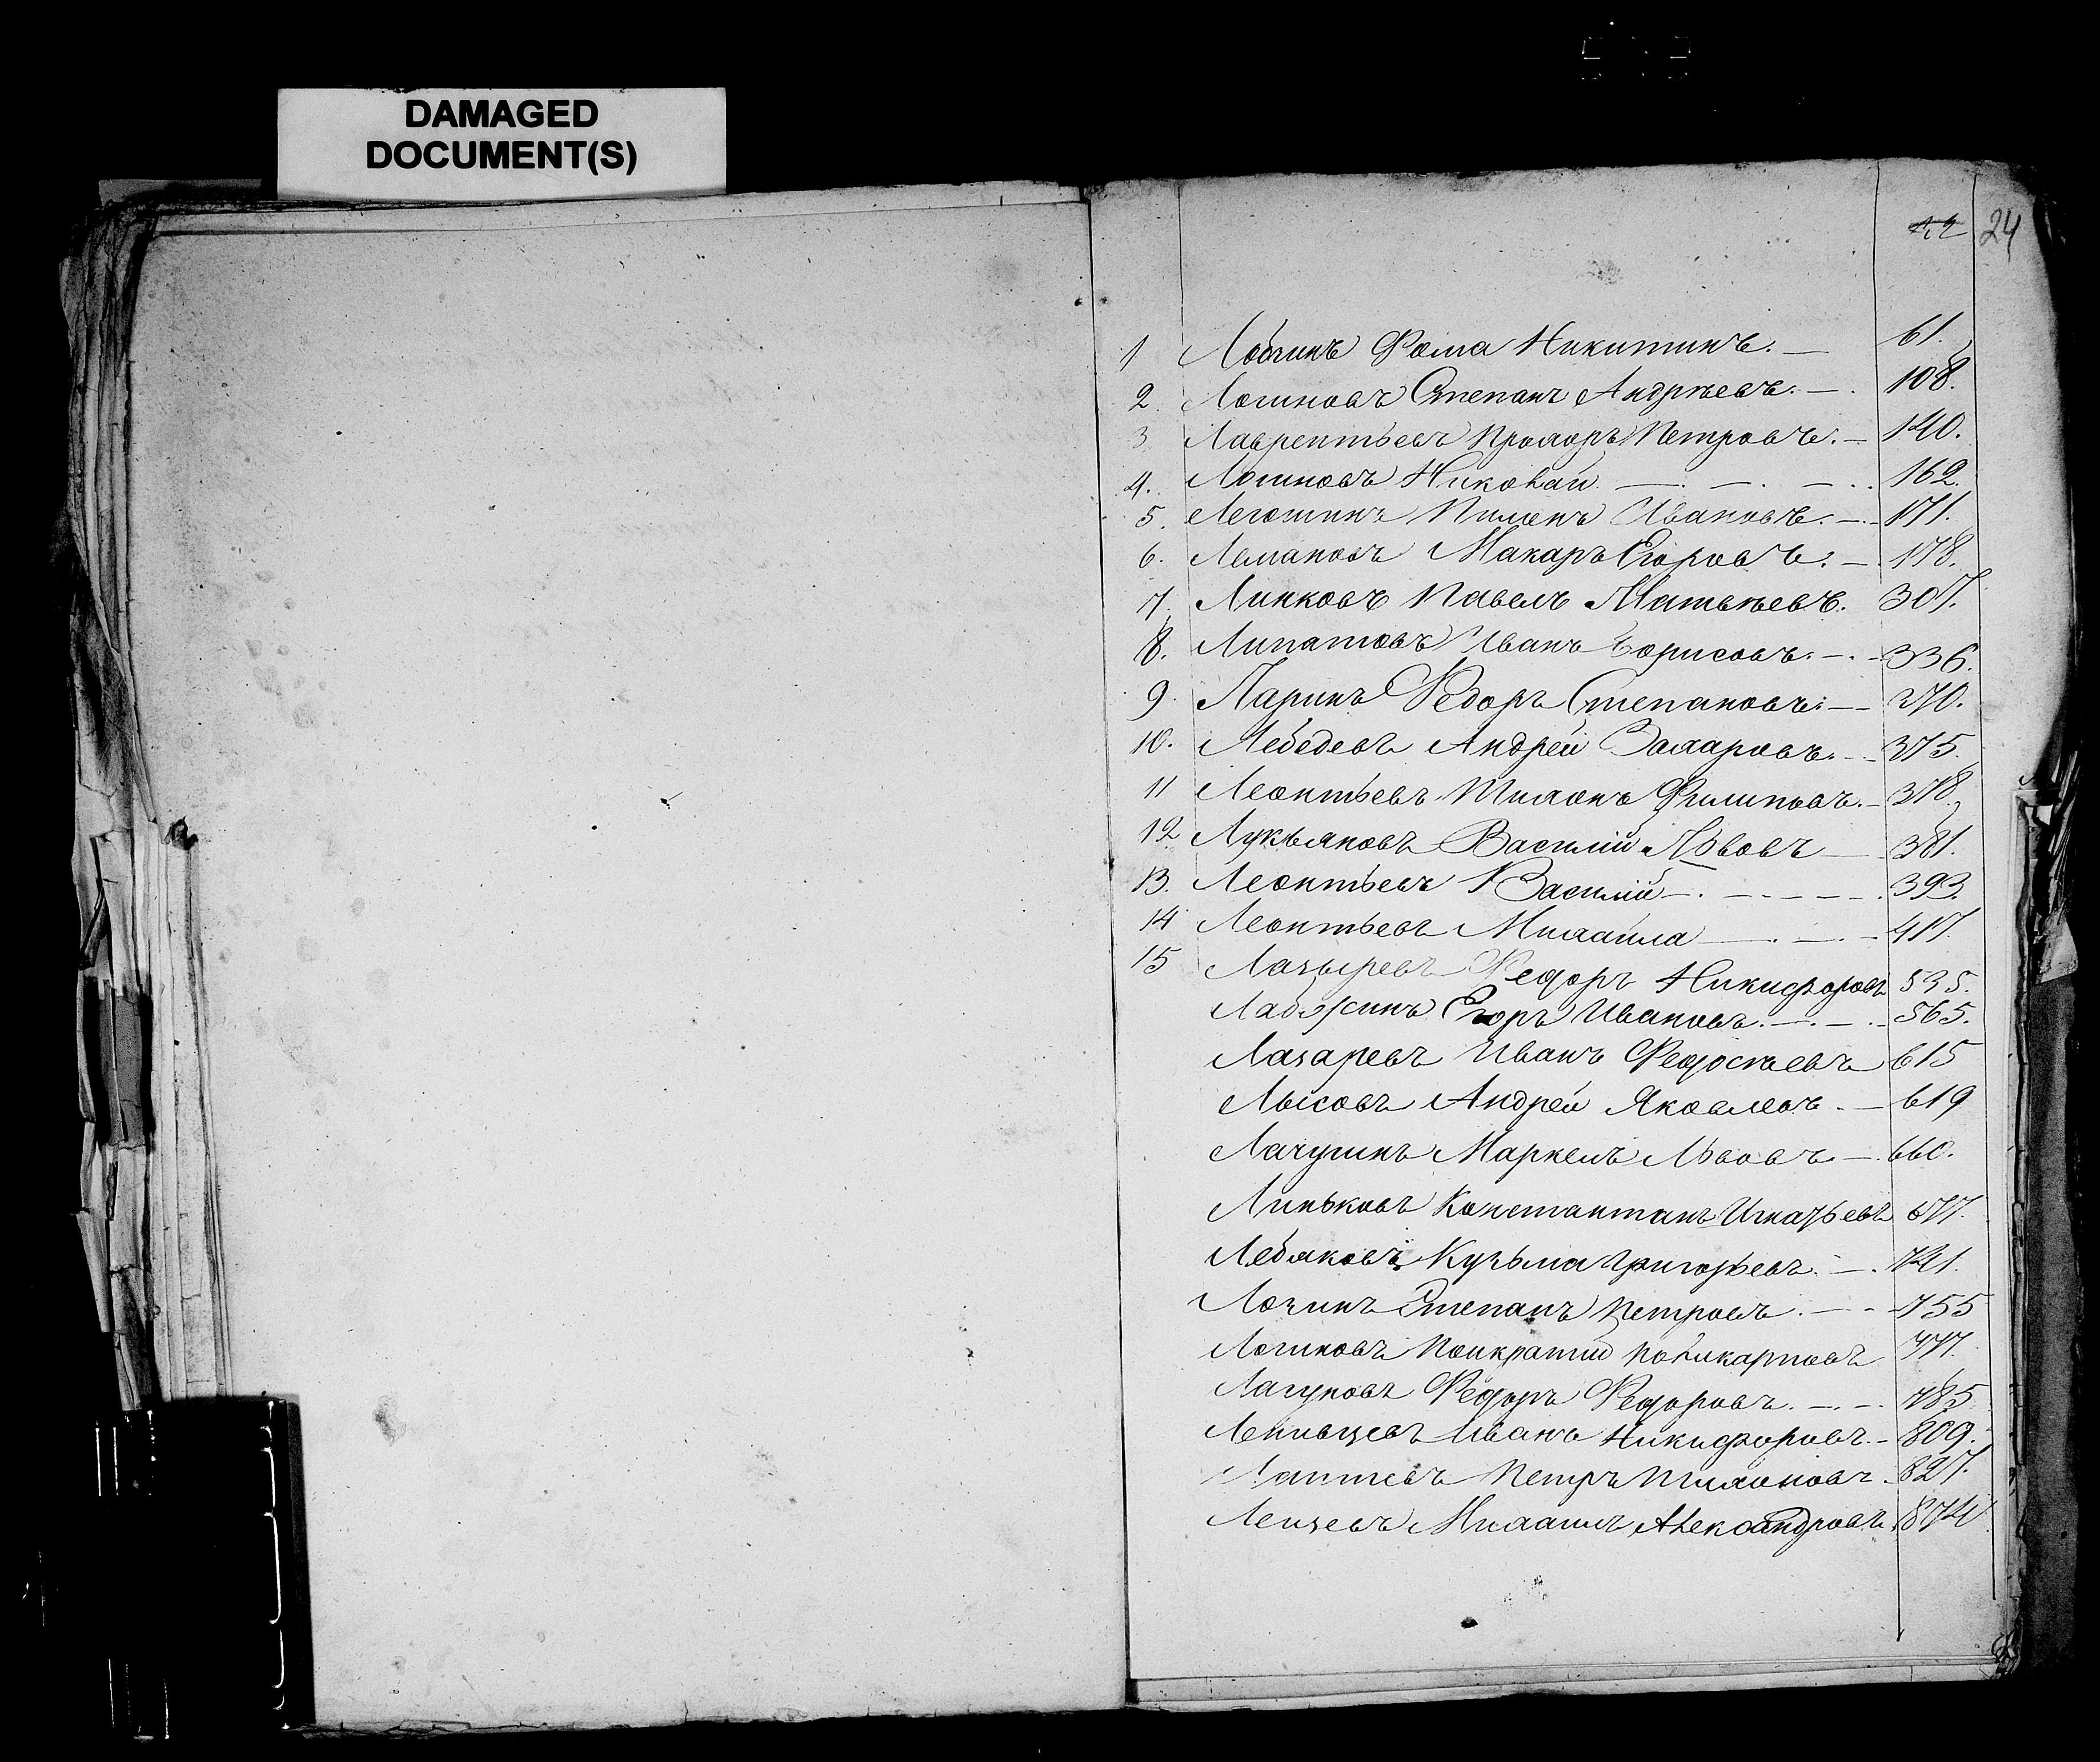 DAMAGED
DOCUMENT(S)
24
1 Лобзинъ Фома Никитинъ. — 61.
2. Логиновъ Степанъ Андрѣевъ. — 108.
3 Лаврентьевъ Прохоръ Петровъ. — 140.
4. Логиновъ Николай — 162.
5. Легошинъ Пименъ Ивановъ. — 171.
6. Лемановъ Макаръ Егоровъ. — 178.
7. Линковъ Павелъ Матвѣевъ. 307.
8. Липатовъ Иванъ Борисовъ. — 336.
9. Ларинъ Федоръ Степановъ. — 370.
10. Лебедевъ Андрей Захаровъ. — 375.
11 Леонтьевъ Тихонъ Филиповъ. — 378.
12 Лукьяновъ Василій Львовъ — 381.
13. Леонтьевъ Василій — 393.
14 Леонтьевъ Михаила — 417.
15 Лазыревъ Федоръ Никифоровъ 535.
Лабзинъ Егоръ Ивановъ. — 565.
Лазаревъ Иванъ Федосѣевъ 615
Лысовъ Андрей Яковлевъ. — 619
Лачугинъ Маркелъ Львовъ — 660.
Линьковъ Константанъ Игнатьевъ 677.
Лебяковъ Кузьма Григорьевъ. — 741.
Лозинъ Степанъ Петровъ. — 755
Логиновъ Понкратій Поликарповъ 777.
Лагуновъ Федоръ Федоровъ. — 785
Ленивцевъ Иванъ Никифоровъ. — 809.
Лаптевъ Петръ Тихоновъ. 827.
Лейзевъ Михаилъ Александровъ. 874